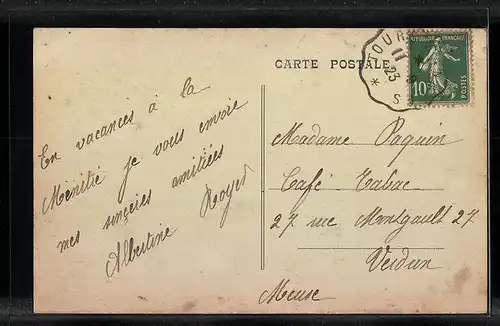 CARTE POSTALE
TOUR
11
23
* S
REPUBLIQUE FRANÇAISE
10c
POSTES
En vacances à la
Ménitré je vous envoie
mes sincères amitiées
Albertine Royer
Madame Paquin
Café Tabac
27 rue Montgault 27
Verdun
Meuse